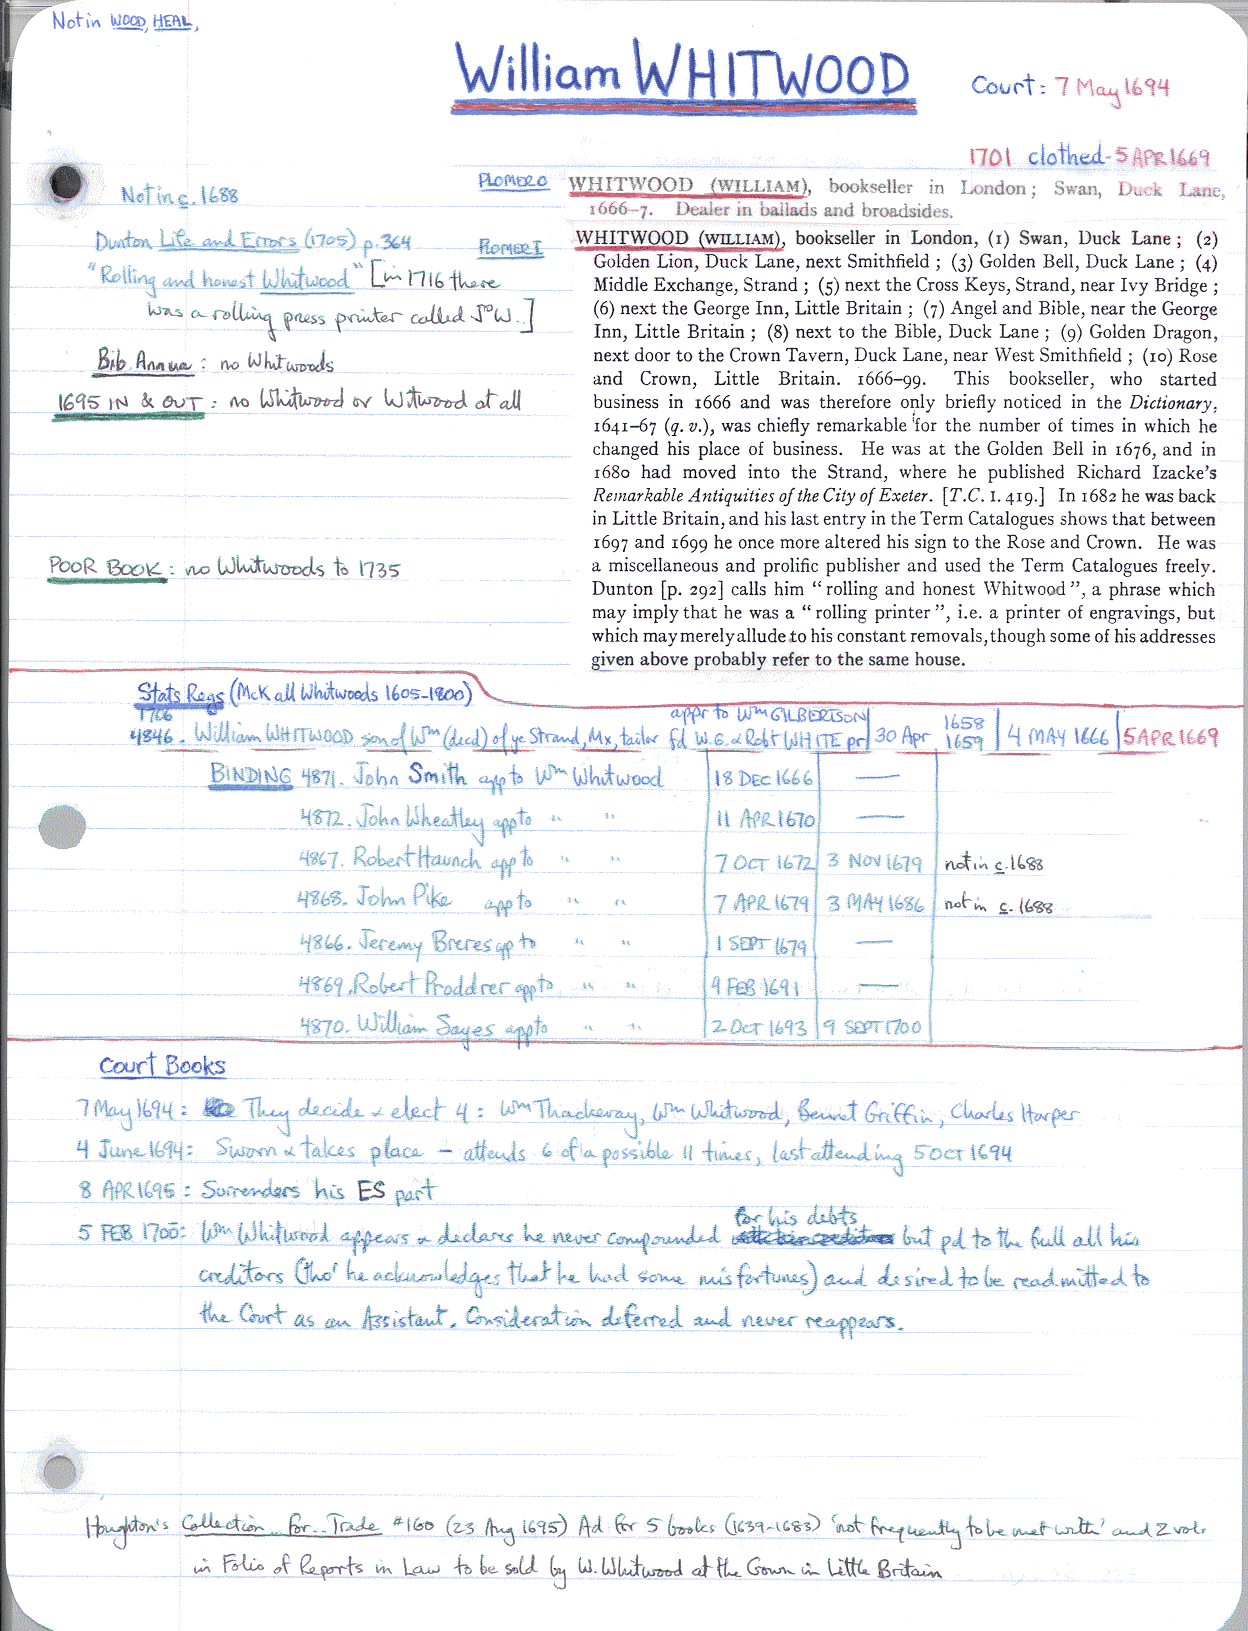 Not in WOOD, HEAL,
William WHITWOOD
Court: 7 May 1694
1701 clothed - 5 APR 1669
Not in c. 1688
PLOMER 0
WHITWOOD (WILLIAM), bookseller in London; Swan, Duck Lane,
1666–7. Dealer in ballads and broadsides.
Dunton Life and Errors (1705) p. 364
"Rolling and honest Whitwood" [in 1716 there
was a rolling press printer called Jº W..]
Bib. Annua: no Whitwoods
1695 IN & OUT: no Whitwood or Witwood at all
POOR BOOK: no Whitwoods to 1735
PLOMER I
WHITWOOD (WILLIAM), bookseller in London, (1) Swan, Duck Lane; (2)
Golden Lion, Duck Lane, next Smithfield; (3) Golden Bell, Duck Lane; (4)
Middle Exchange, Strand; (5) next the Cross Keys, Strand, near Ivy Bridge;
(6) next the George Inn, Little Britain; (7) Angel and Bible, near the George
Inn, Little Britain; (8) next to the Bible, Duck Lane; (9) Golden Dragon,
next door to the Crown Tavern, Duck Lane, near West Smithfield; (10) Rose
and Crown, Little Britain. 1666–99. This bookseller, who started
business in 1666 and was therefore only briefly noticed in the Dictionary,
1641–67 (q. v.), was chiefly remarkable for the number of times in which he
changed his place of business. He was at the Golden Bell in 1676, and in
1680 had moved into the Strand, where he published Richard Izacke's
Remarkable Antiquities of the City of Exeter. [T.C. I. 419.] In 1682 he was back
in Little Britain, and his last entry in the Term Catalogues shows that between
1697 and 1699 he once more altered his sign to the Rose and Crown. He was
a miscellaneous and prolific publisher and used the Term Catalogues freely.
Dunton [p. 292] calls him "rolling and honest Whitwood", a phrase which
may imply that he was a "rolling printer", i.e. a printer of engravings, but
which may merely allude to his constant removals, though some of his addresses
given above probably refer to the same house.
Stats Regs (McK all Whitwoods 1605-1800)
1706
appr to Wm GILBERTSON 1658
4846. William WHITWOOD son of Wm (decd) of ye Strand, Mx, tailor fd W.G. & Robt WHITE pr 30 Apr 1659 4 MAY 1666 5 APR 1669
BINDING 4871. John Smith app to Wm Whitwood 18 DEC 1666 —
4872. John Wheatley app to " " 11 APR 1670 —
4867. Robert Haunch app to " " 7 OCT 1672 3 NOV 1679 not in c. 1688
4868. John Pike app to " " 7 APR 1679 3 MAY 1686 not in c. 1688
4866. Jeremy Breres app to " " 1 SEPT 1679 —
4869. Robert Proddrer app to " " 9 FEB 1691 —
4870. William Sayes app to " " 2 Oct 1693 9 SEPT 1700
Court Books
7 May 1694: They decide & elect 4: Wm Thackeray, Wm Whitwood, Bennet Griffin, Charles Harper
4 June 1694: Sworn & takes place – attends 6 of a possible 11 times, last attending 5 OCT 1694
8 APR 1695: Surrenders his ES part
for his debts
5 FEB 1700: Wm Whitwood appears & declares he never compounded but pd to the full all his
creditors (tho' he acknowledges that he had some misfortunes) and desired to be readmitted to
the Court as an Assistant. Consideration deferred and never reappears.
Houghton's Collection..for..Trade #160 (23 Aug 1695) Ad for 5 books (1639-1683) 'not frequently to be met with' and 2 vols
in Folio of Reports in Law to be sold by W. Whitwood at the Crown in Little Britain